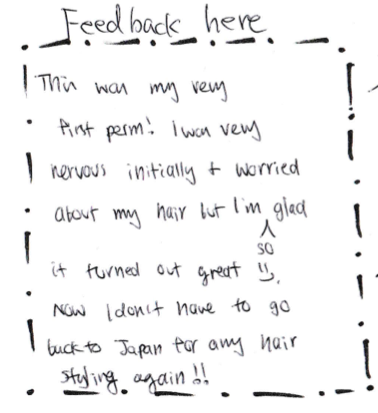 Feedback here
This was my very
first perm! I was very
nervous initially + worried
about my hair but I'm so glad
it turned out great :)
Now I don't have to go
back to Japan for any hair
styling again!!